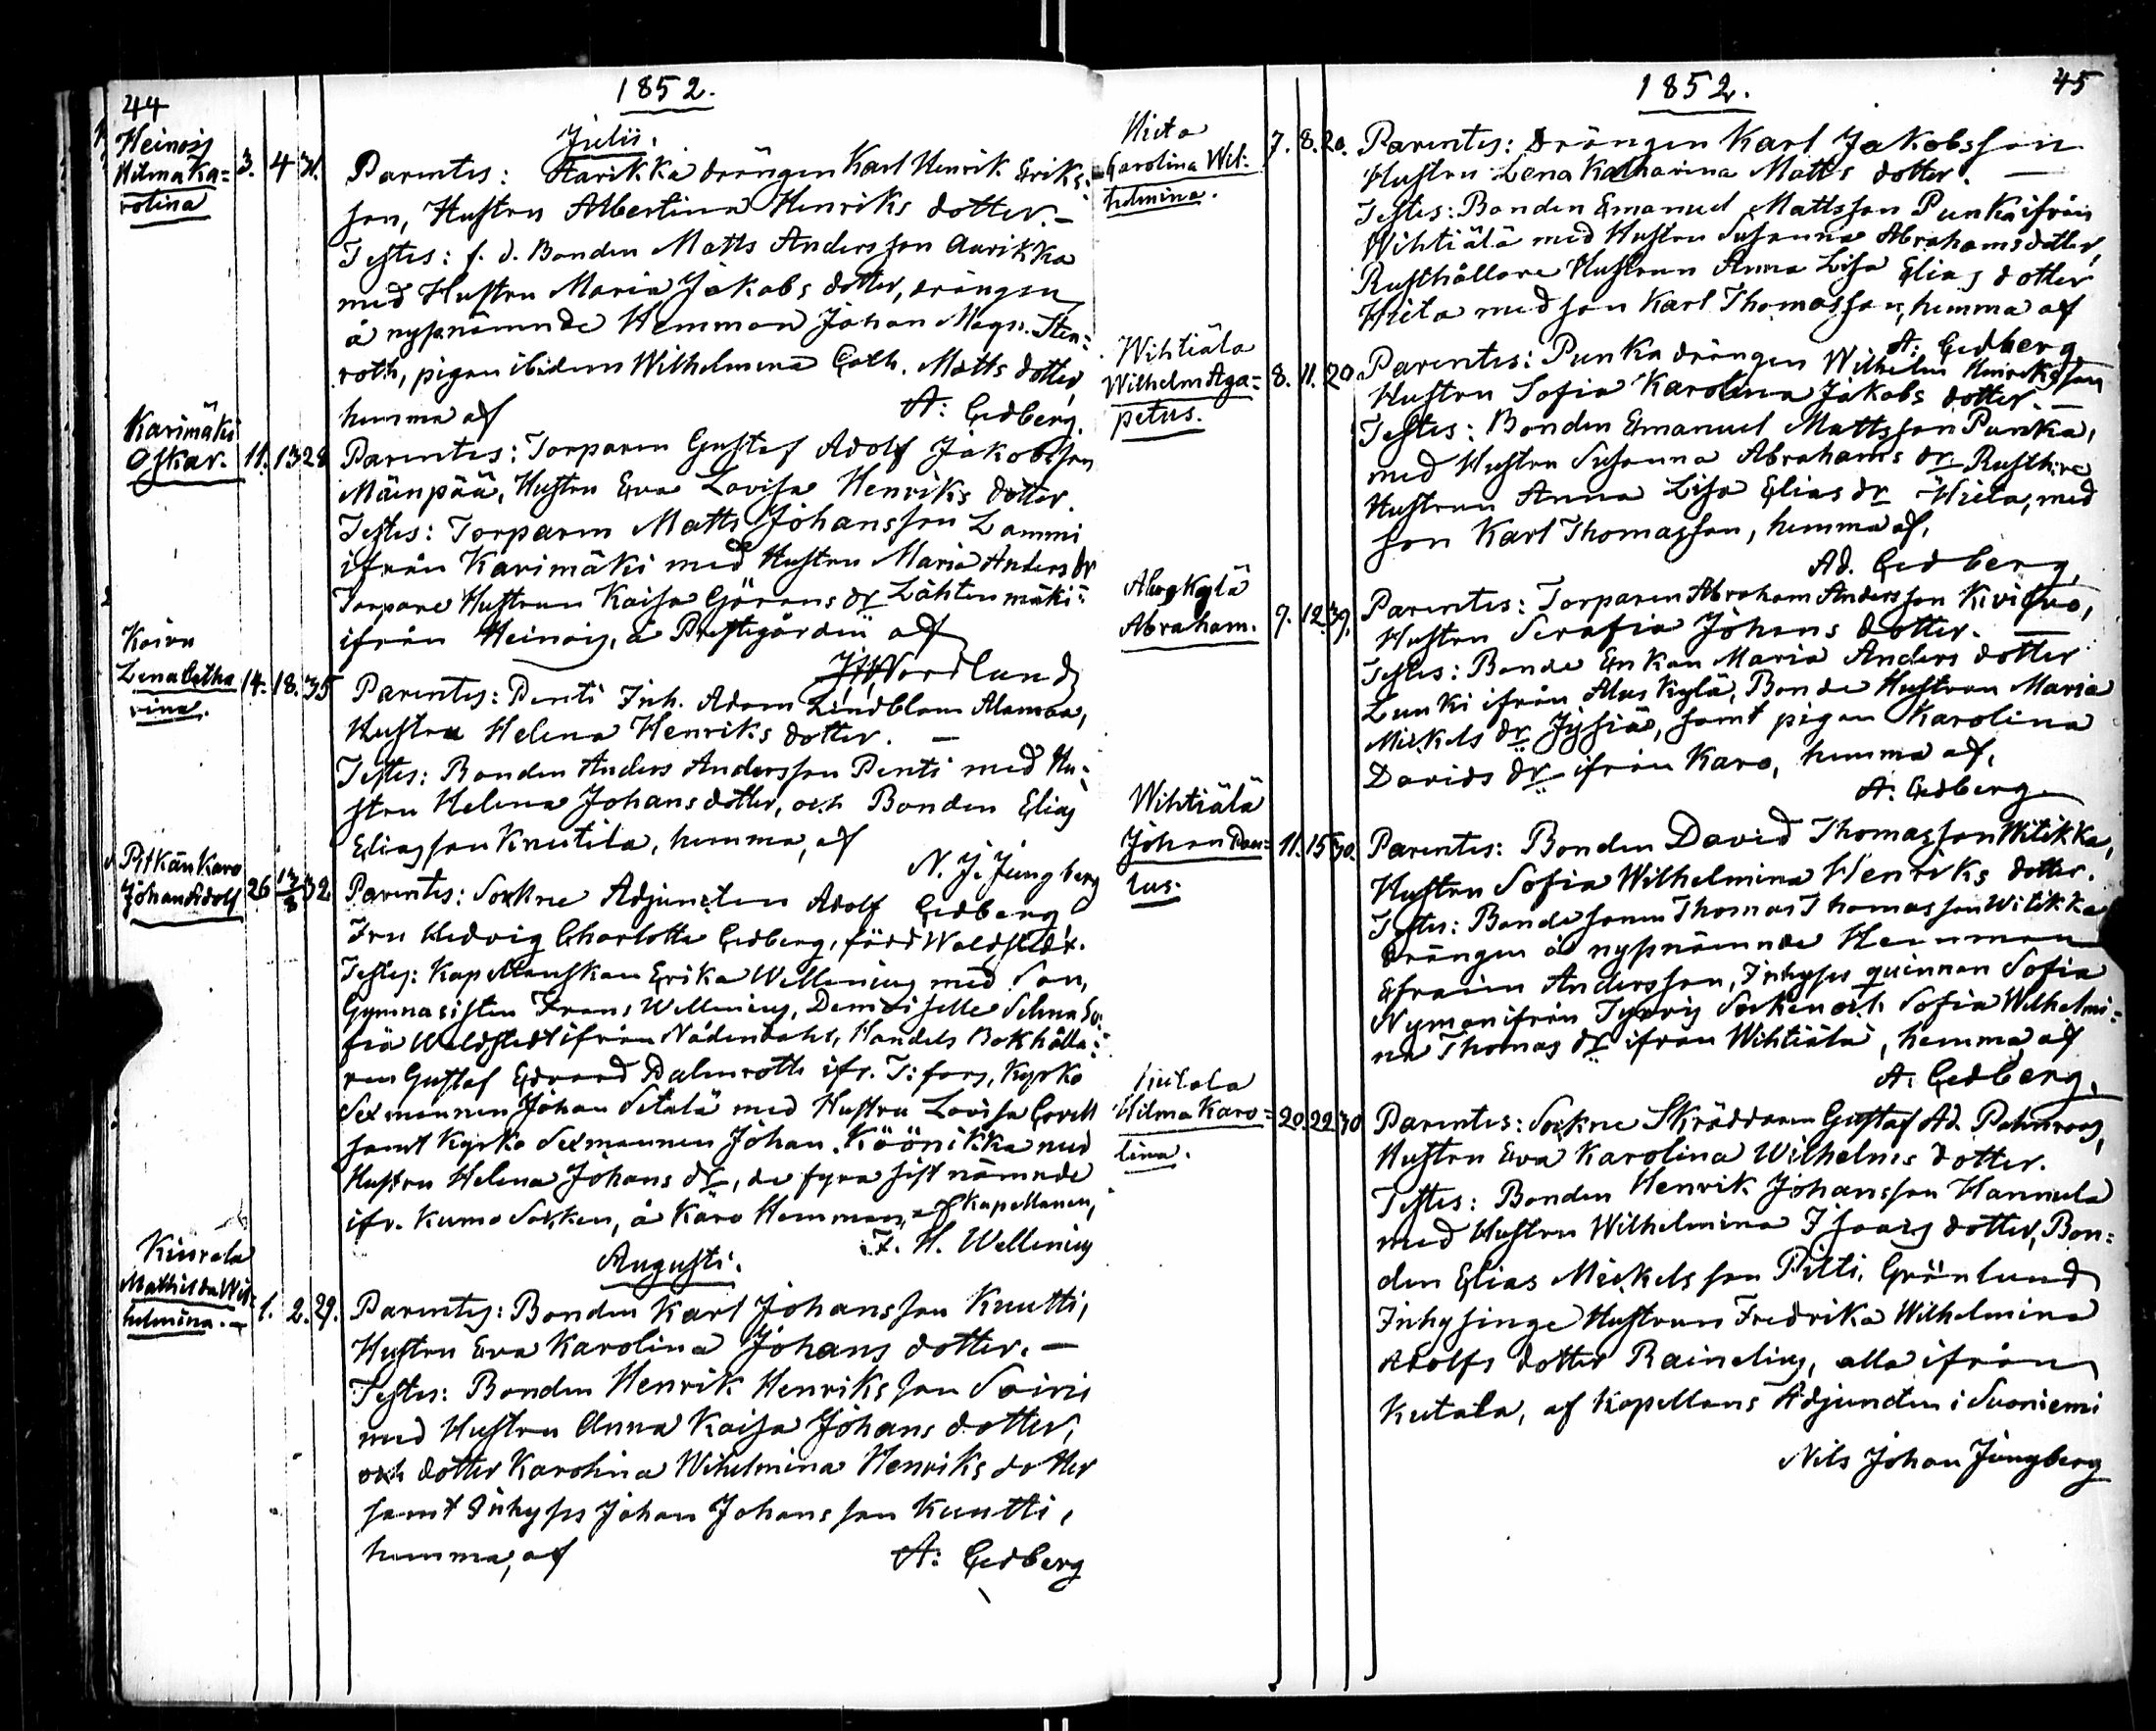 44
1852.
Julii.
Heinois
Hilma Ka=
rolina
3. 4 31.
Parentes: Aarikka drängen Karl Henrik Eriks-
son, Hustru Albertina Henriks dotter. –
Testes: f. d. Bonden Matts Andersson Aarikka
med Hustru Maria Jakobs dotter, drängen
å nyssnämnde Hemman Johan Magn. Sten=
roth, pigan ibidem Wilhelmina Cath. Matts dotter,
hemma af
A: Cedberg.
Karimäki
Oskar.
11. 13 28
Parentes: Torparen Gustaf Adolf Jakobsson
Mäenpää, Hustru Eva Lovisa Henriks dotter.
Testes: Torparen Matts Johansson Lammi
ifrån Karimäki med Hustru Maria Anders dr
Torpare Hustrun Kaisa Görans dr Lähtenmäki
ifrån Heinois, å Prestegården af
Nordlund
Koivu
Lena Catha
rina.
14. 18. 35
Parentes: Penti Inh. Adam Lindblom Alamaa,
Hustru Helena Henriks dotter. –
Testes: Bonden Anders Andersson Penti med Hu-
stru Helena Johans dotter, och Bonden Elias
Eliasson Knutila, hemma, af
N. J. Jungberg
Pitkän Karo
Johan Adolf
26 13/8 32
Parentes: Sockne Adjuncten Adolf Cedberg
Fru Hedvig Charlotta Cedberg, född Waldstedt.
Testes: Kapellanskan Erika Wellenius med Son,
Gymnasisten Frans Wellenius, Demoiselle Selma So-
fia Waldstedt ifrån Nådendahl, Handels Bokhålla-
ren Gustaf Edvard Dalenroth ifr. T:fors, Kyrko
Sexmannen Johan Setälä med Hustru Lovisa Corell
samt Kyrko Sexmannen Johan Köönikka med
Hustru Helena Johans dr, de fyra sist nämnde
ifr. Kumo Socken, å Karo Hemman, af Kapellanen,
F. H. Wellenius
Augusti.
Kiurala
Mathilda Wil-
helmina. –
1. 2. 29.
Parentes: Bonden Karl Johansson Knutti,
Hustru Eva Karolina Johans dotter. –
Testes: Bonden Henrik Henriksson Soinis
med Hustru Anna Kaisa Johans dotter,
och dotter Karolina Wilhelmina Henriks dotter
samt Inhyses Johan Johansson Knutti,
hemma, af
A: Cedberg
1852.
45
Hieta
Carolina Wil-
helmina.
7. 8. 20.
Parentes: Drängen Karl Jakobsson
Hustru Lena Katharina Matts dotter. –
Testes: Bonden Emanuel Mattsson Punka ifrån
Wihtiälä med Hustru Susanna Abrahams dotter,
Rusthållare Hustrun Anna Lisa Elias dotter
Hieta med son Karl Thomasson, hemma af
A: Cedberg
Wihtiälä
Wilhelm Aga=
petus.
8. 11. 20
Parentes: Punka drängen Wilhelm Henriksson
Hustru Sofia Karolina Jakobs dotter. –
Testes: Bonden Emanuel Mattsson Punka,
med Hustru Susanna Abrahams dr Rusth:re
Hustrun Anna Lisa Elias dr Hieta, med
son Karl Thomasson, hemma af,
Ad. Cedberg,
Alus Kylä
Abraham.
9. 12. 39.
Parentes: Torparen Abraham Andersson
Hustru Serafia Johans dotter. –
Testes: Bonde Enkan Maria Anders dotter
Lunki ifrån Alus Kylä, Bonde Hustrun Maria
Mickels dr Jysiä, samt pigan Karolina
Davids dr ifrån Karo, hemma af,
A. Cedberg
Wihtiälä
Johan
11. 15 30.
Parentes: Bonden David Thomasson Witikka,
Hustru Sofia Wilhelmina Henriks dotter.
Testes: Bondesonen Thomas Thomasson Witikka
drängen å nyssnämnde Hemman
Efraim Andersson, Inhyses quinnan Sofia
Nyman ifrån Tyrvis Socken och Sofia Wilhelmi-
na Thomas dr ifrån Wihtiälä, hemma af
A: Cedberg.
Kutala
Hilma Karo=
lina.
20. 22. 30
Parentes: Sockne Skräddaren Gustaf Ad. Palmroos,
Hustru Eva Karolina Wilhelms dotter.
Testes: Bonden Henrik Johansson Hannula
med Hustru Wilhelmina Isaacs dotter, Bon=
den Elias Mickelsson Pitti. Grönlund
Inhysinge Hustrun Fredrika Wilhelmina
Adolfs dotter Rainelius, alla ifrån
Kutala, af Kapellans Adjuncten i Suoniemi
Nils Johan Jungberg